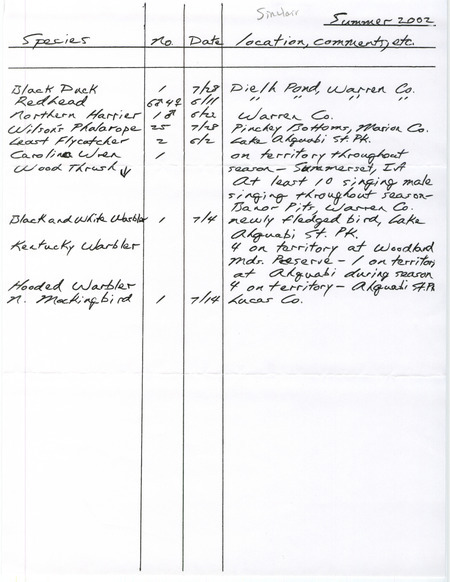 Sinclair
Summer 2002
Species no. Date location, comments, etc.
Black Duck 1 7/28 Dielh Pond, Warren Co.
Redhead 6♂4♀ 6/11 " " " "
Northern Harrier 1♂ 6/22 Warren Co.
Wilson's Phalarope 25 7/28 Pinchey Bottoms, Marion Co.
Least Flycatcher 2 6/2 Lake Ahquabi St. Pk.
Carolina Wren 1 on territory throughout
season - Summerset, IA
Wood Thrush At least 10 singing male
singing throughout season-
Banor Pits, Warren Co.
Black and White Warbler 1 7/4 newly fledged bird, Lake
Ahquabi St. PK.
Kentucky Warbler 4 on territory at Woodland
Mds. Preserve - 1 on territory
at Ahquabi during season
Hooded Warbler 4 on territory - Ahquabi St. Pk
N. Mockingbird 1 7/14 Lucas Co.